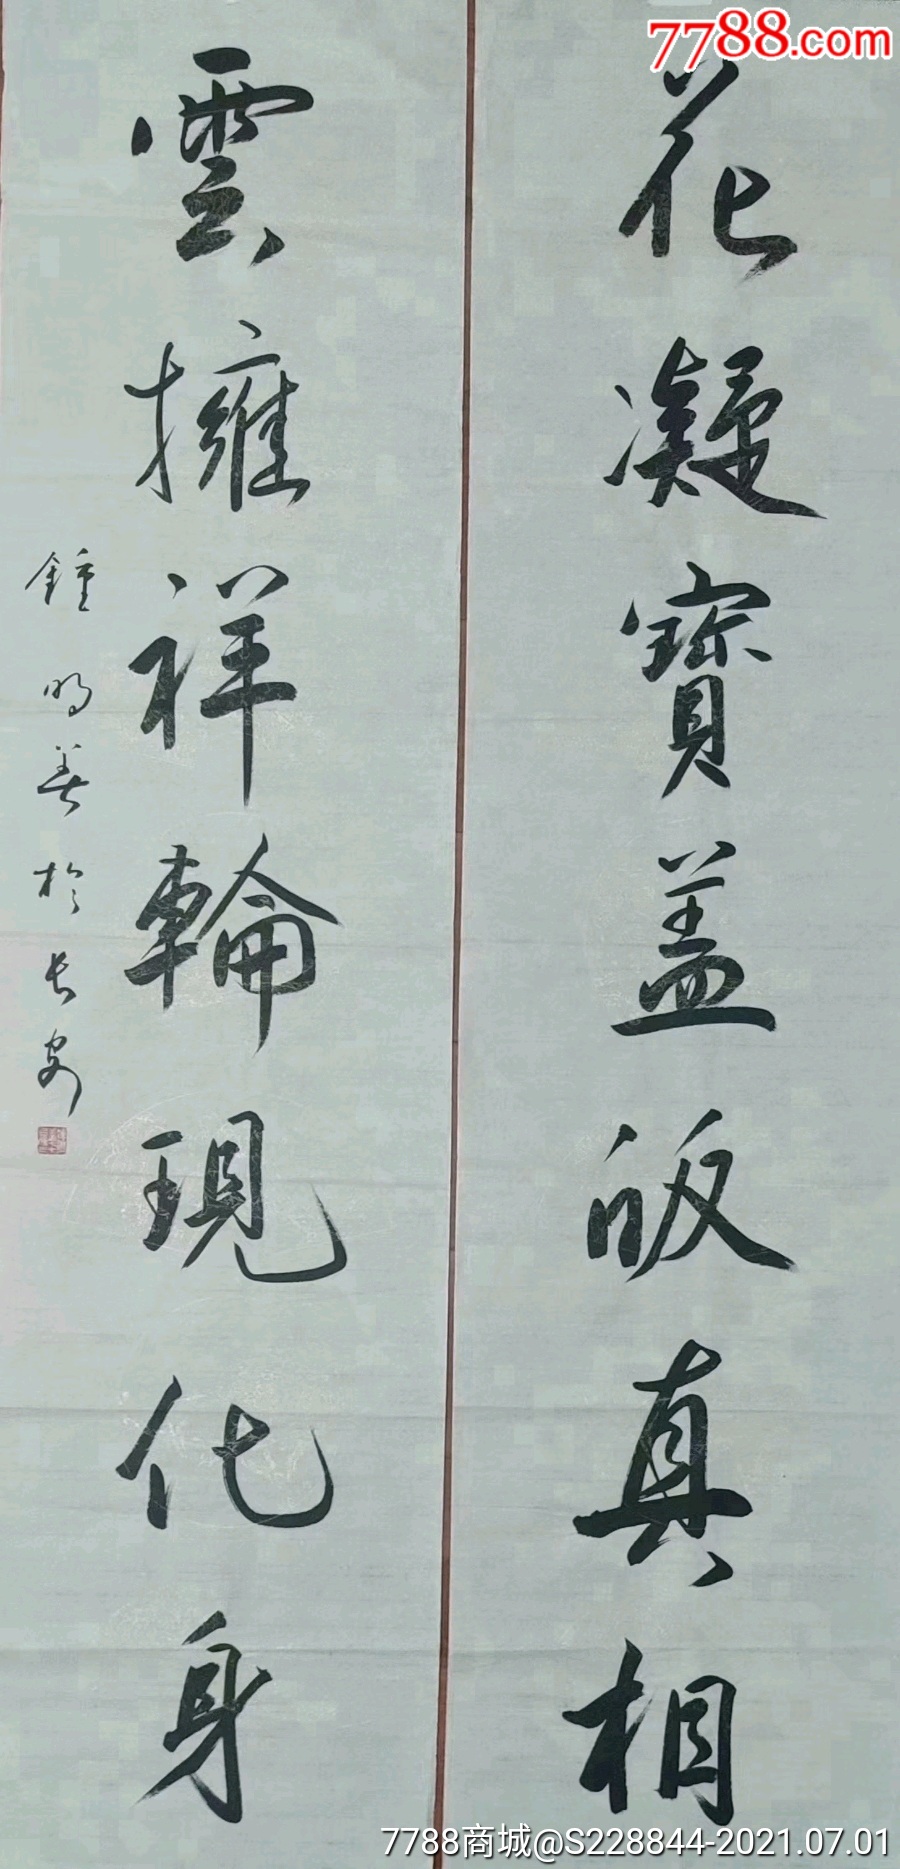 7788.com
花凝寶盖皈真相
雲擁祥輪現化身
鍾明善於长安
7788商城@S228844-2021.07.01